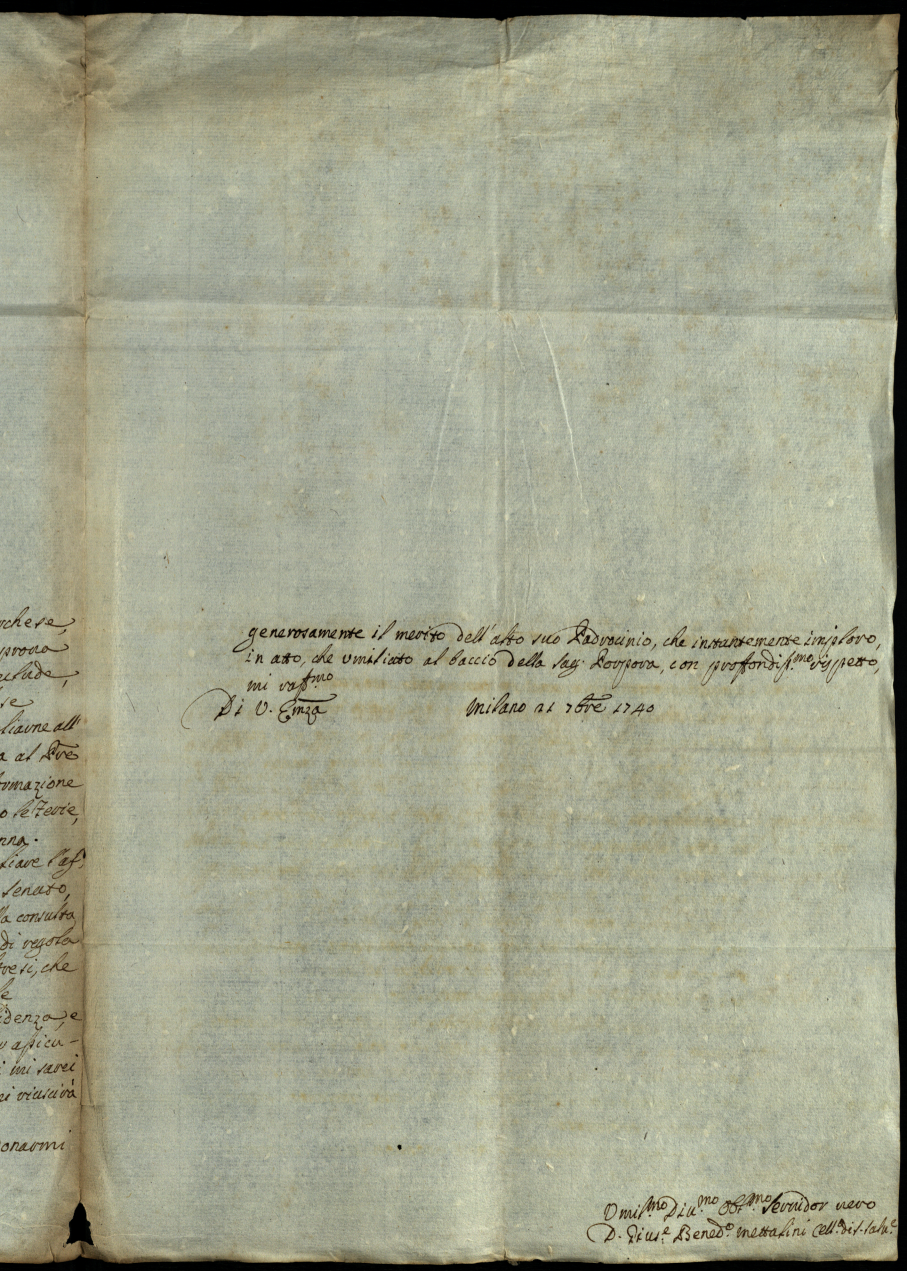 rchese,
prova
clude,
se
liarne all'
a al Pre
formazione
o le Ferie,
nna.
liare l'aff
senato,
la consulta
di regola
tresi, che
le
idenza, e
o assicu-
i mi sarei
ni riuscirà
onarmi
generosamente il merito dell'alto suo Padrocinio, che instantemente imploro,
in atto, che umiliato al baccio della Sag. Porpora, con proffondiss.mo rispetto,
mi raff.mo
Di V. Emza Milano 21 7bre 1740
Umil.mo Diu.mo Obl.mo Servidor vero
D. Gius.e Bened.o